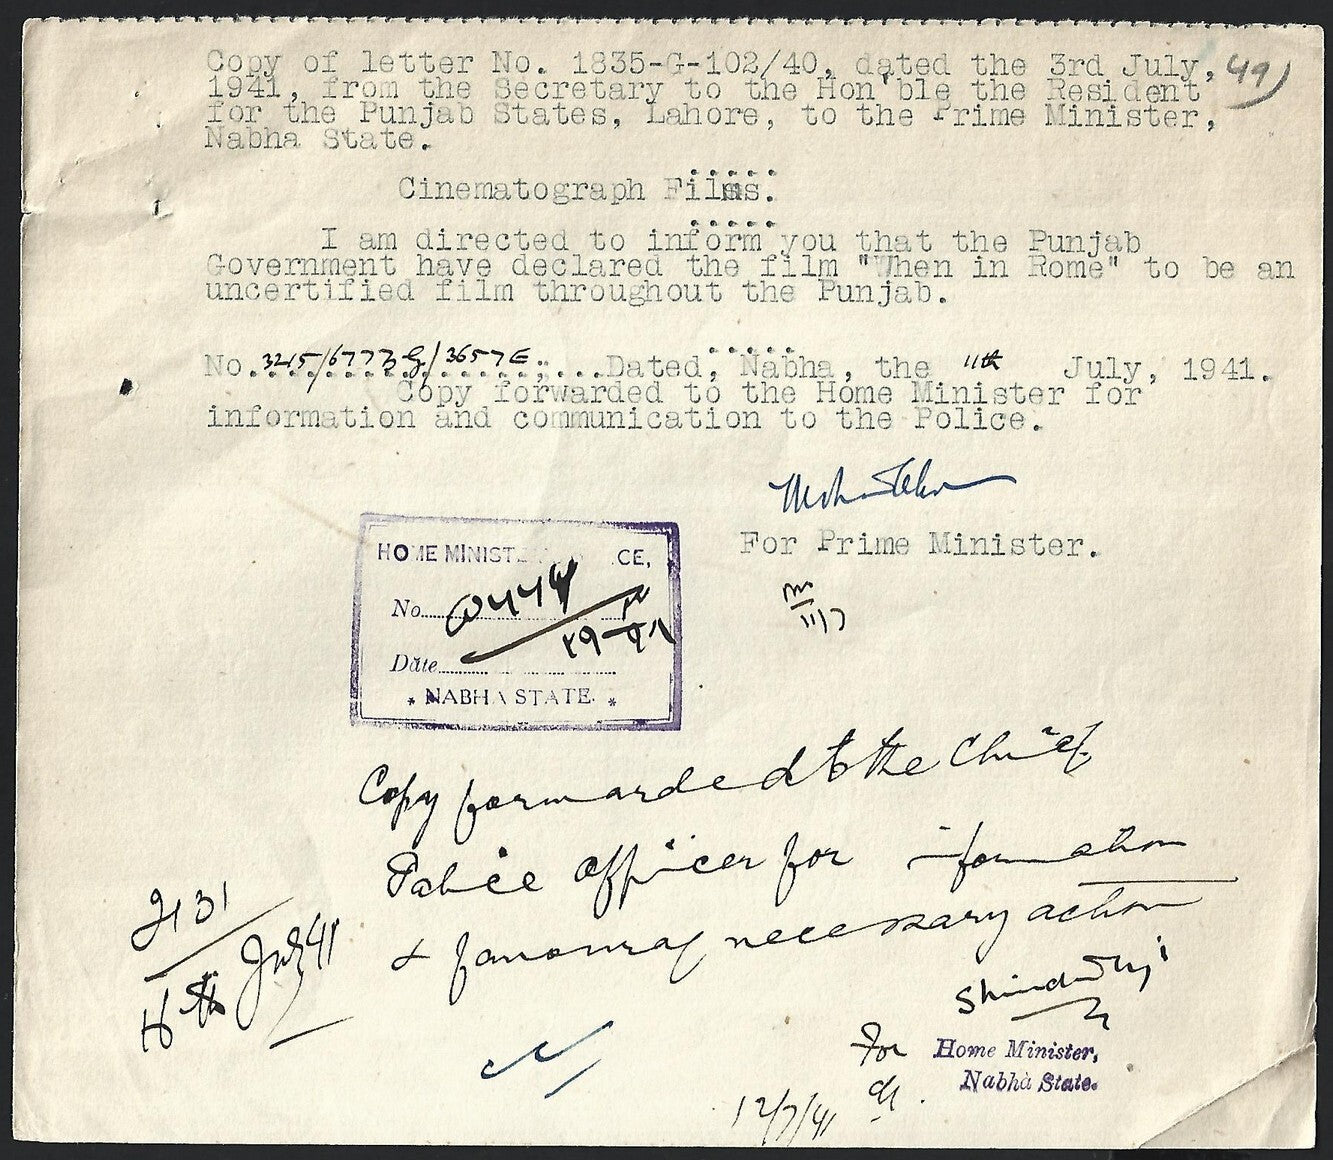 Copy of letter No. 1835-G-102/40, dated the 3rd July,
49)
1941, from the Secretary to the Hon'ble the Resident
for the Punjab States, Lahore, to the Prime Minister,
Nabha State.
.....
Cinematograph Films.
.....
I am directed to inform you that the Punjab
Government have declared the film "When in Rome" to be an
uncertified film throughout the Punjab.
.....
No. 3245/6773G/3657E;...Dated, Nabha, the 11th July, 1941.
Copy forwarded to the Home Minister for
information and communication to the Police.
For Prime Minister.
11/7
HOME MINIST CE,
No.
Date
* NABHA STATE. *
Copy forwarded to the Chief
Police Officer for information
& favour of necessary action
2131
16th July 41
For Home Minister,
Nabha State.
12/7/41